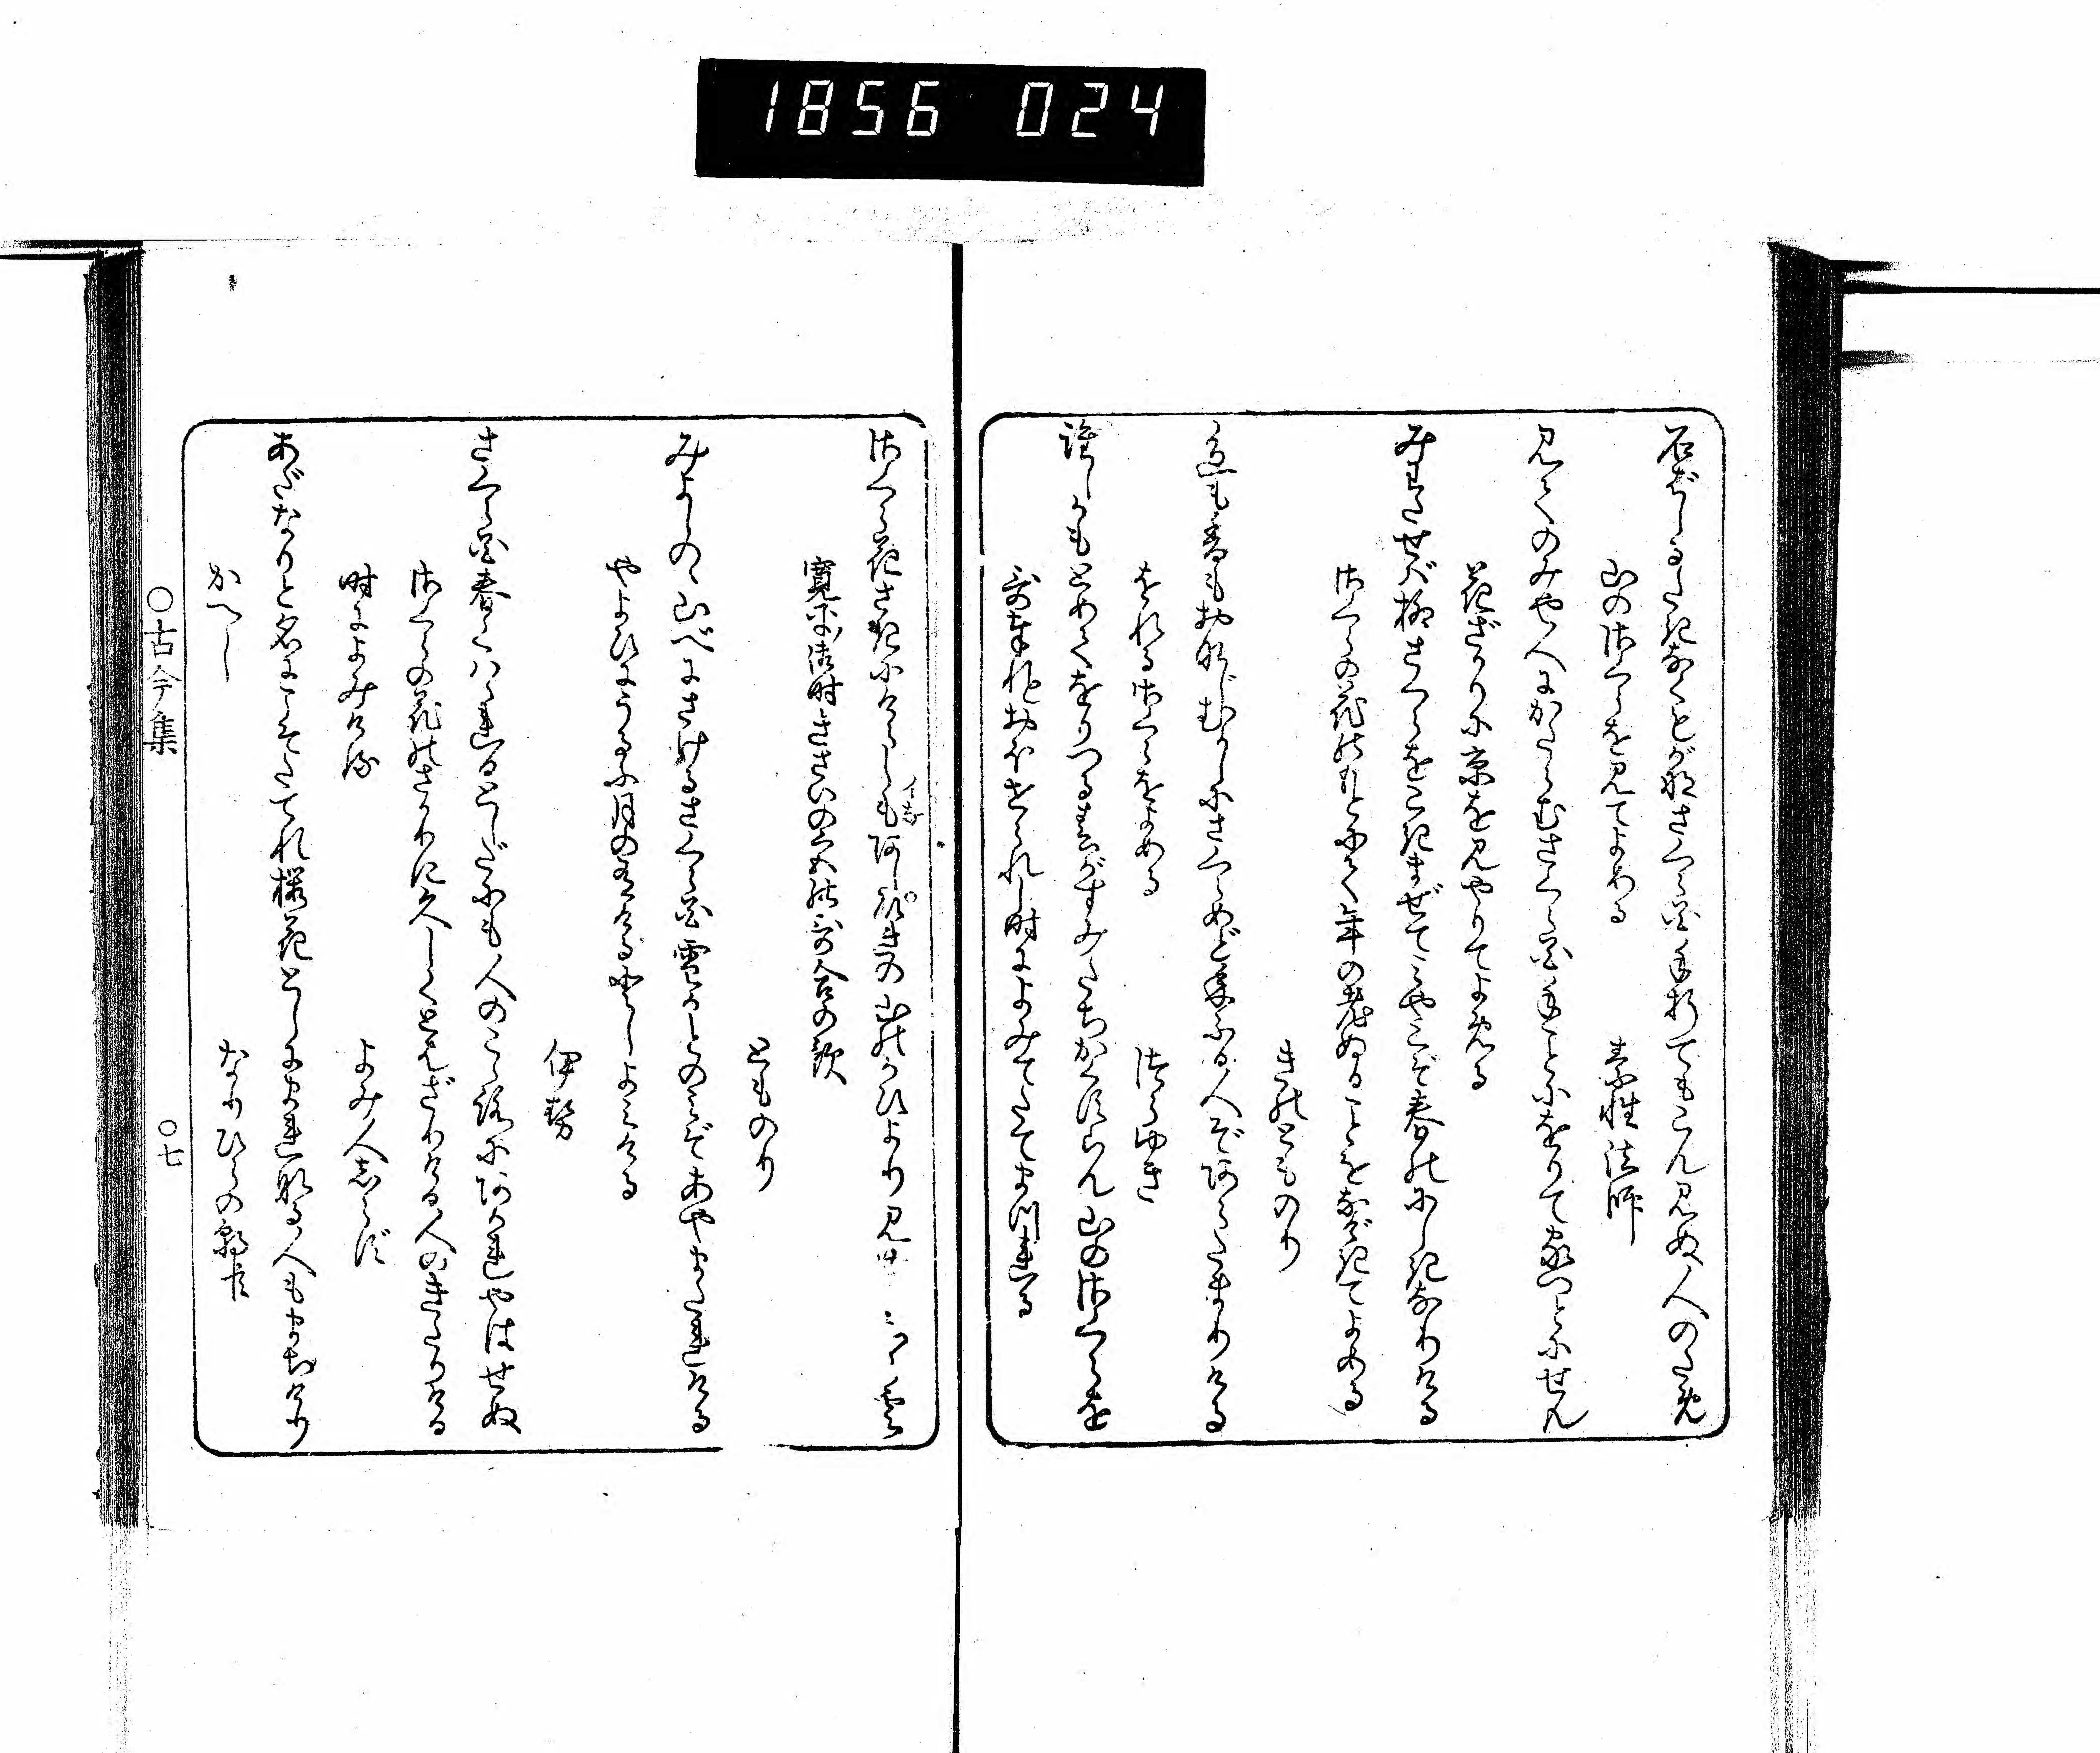 1856 024
石ばしるたきなくもがな桜花手折てもこん見ぬ人のため
山の桜を見てよめる
素性法師
見てのみや人にかたらむさくら花手ごとにをりて家づとにせん
花ざかりに京を見やりてよめる
みわたせば柳さくらをこきまぜてみやこぞ春のにしきなりける
さくらの花のもとにて年の老ぬることをなげきてよめる
きのとものり
色も香もおなじむかしにさくらめど年ふる人ぞあらたまりける
をれるさくらをよめる
つらゆき
誰しかもとめてをりつる春がすみたちかくすらん山のさくらを
哥奉れとおほせられし時によみてたてまつれる
さくら花さきにけらしもあし引の山のかひより見ゆ 雲
寛平御時きさいの宮の哥合の歌
とものり
みよしのゝ山べにさけるさくら花雪かとのみぞあやまたれける
やよひにうるふ月の有ける年よみける
伊勢
さくら花春くはゝれる年だにも人のこゝろにあかれやはせぬ
さくらの花のさかりに久しくとはざりける人のきたりける
時によみける
よみ人しらず
あだなりと名にこそたてれ桜花としにまれなる人もまちけり
かへし
なりひらの朝臣
○古今集
○七